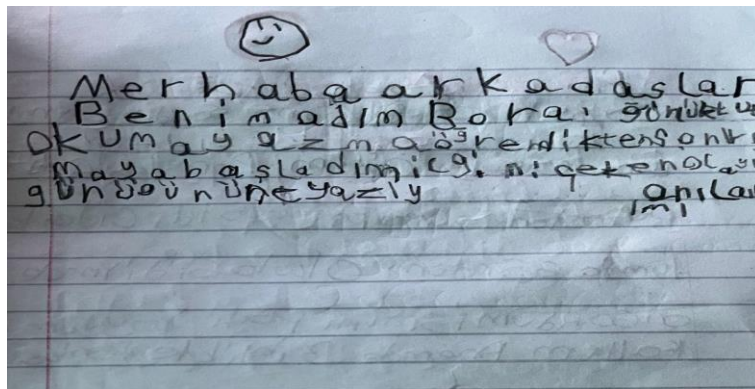 Merhaba arkadaşlar
Benim adım Bora. günlük tu
Okuma yazma öğrendikten sonr
maya başladım ilgi
günü gününe yazıy
anıla